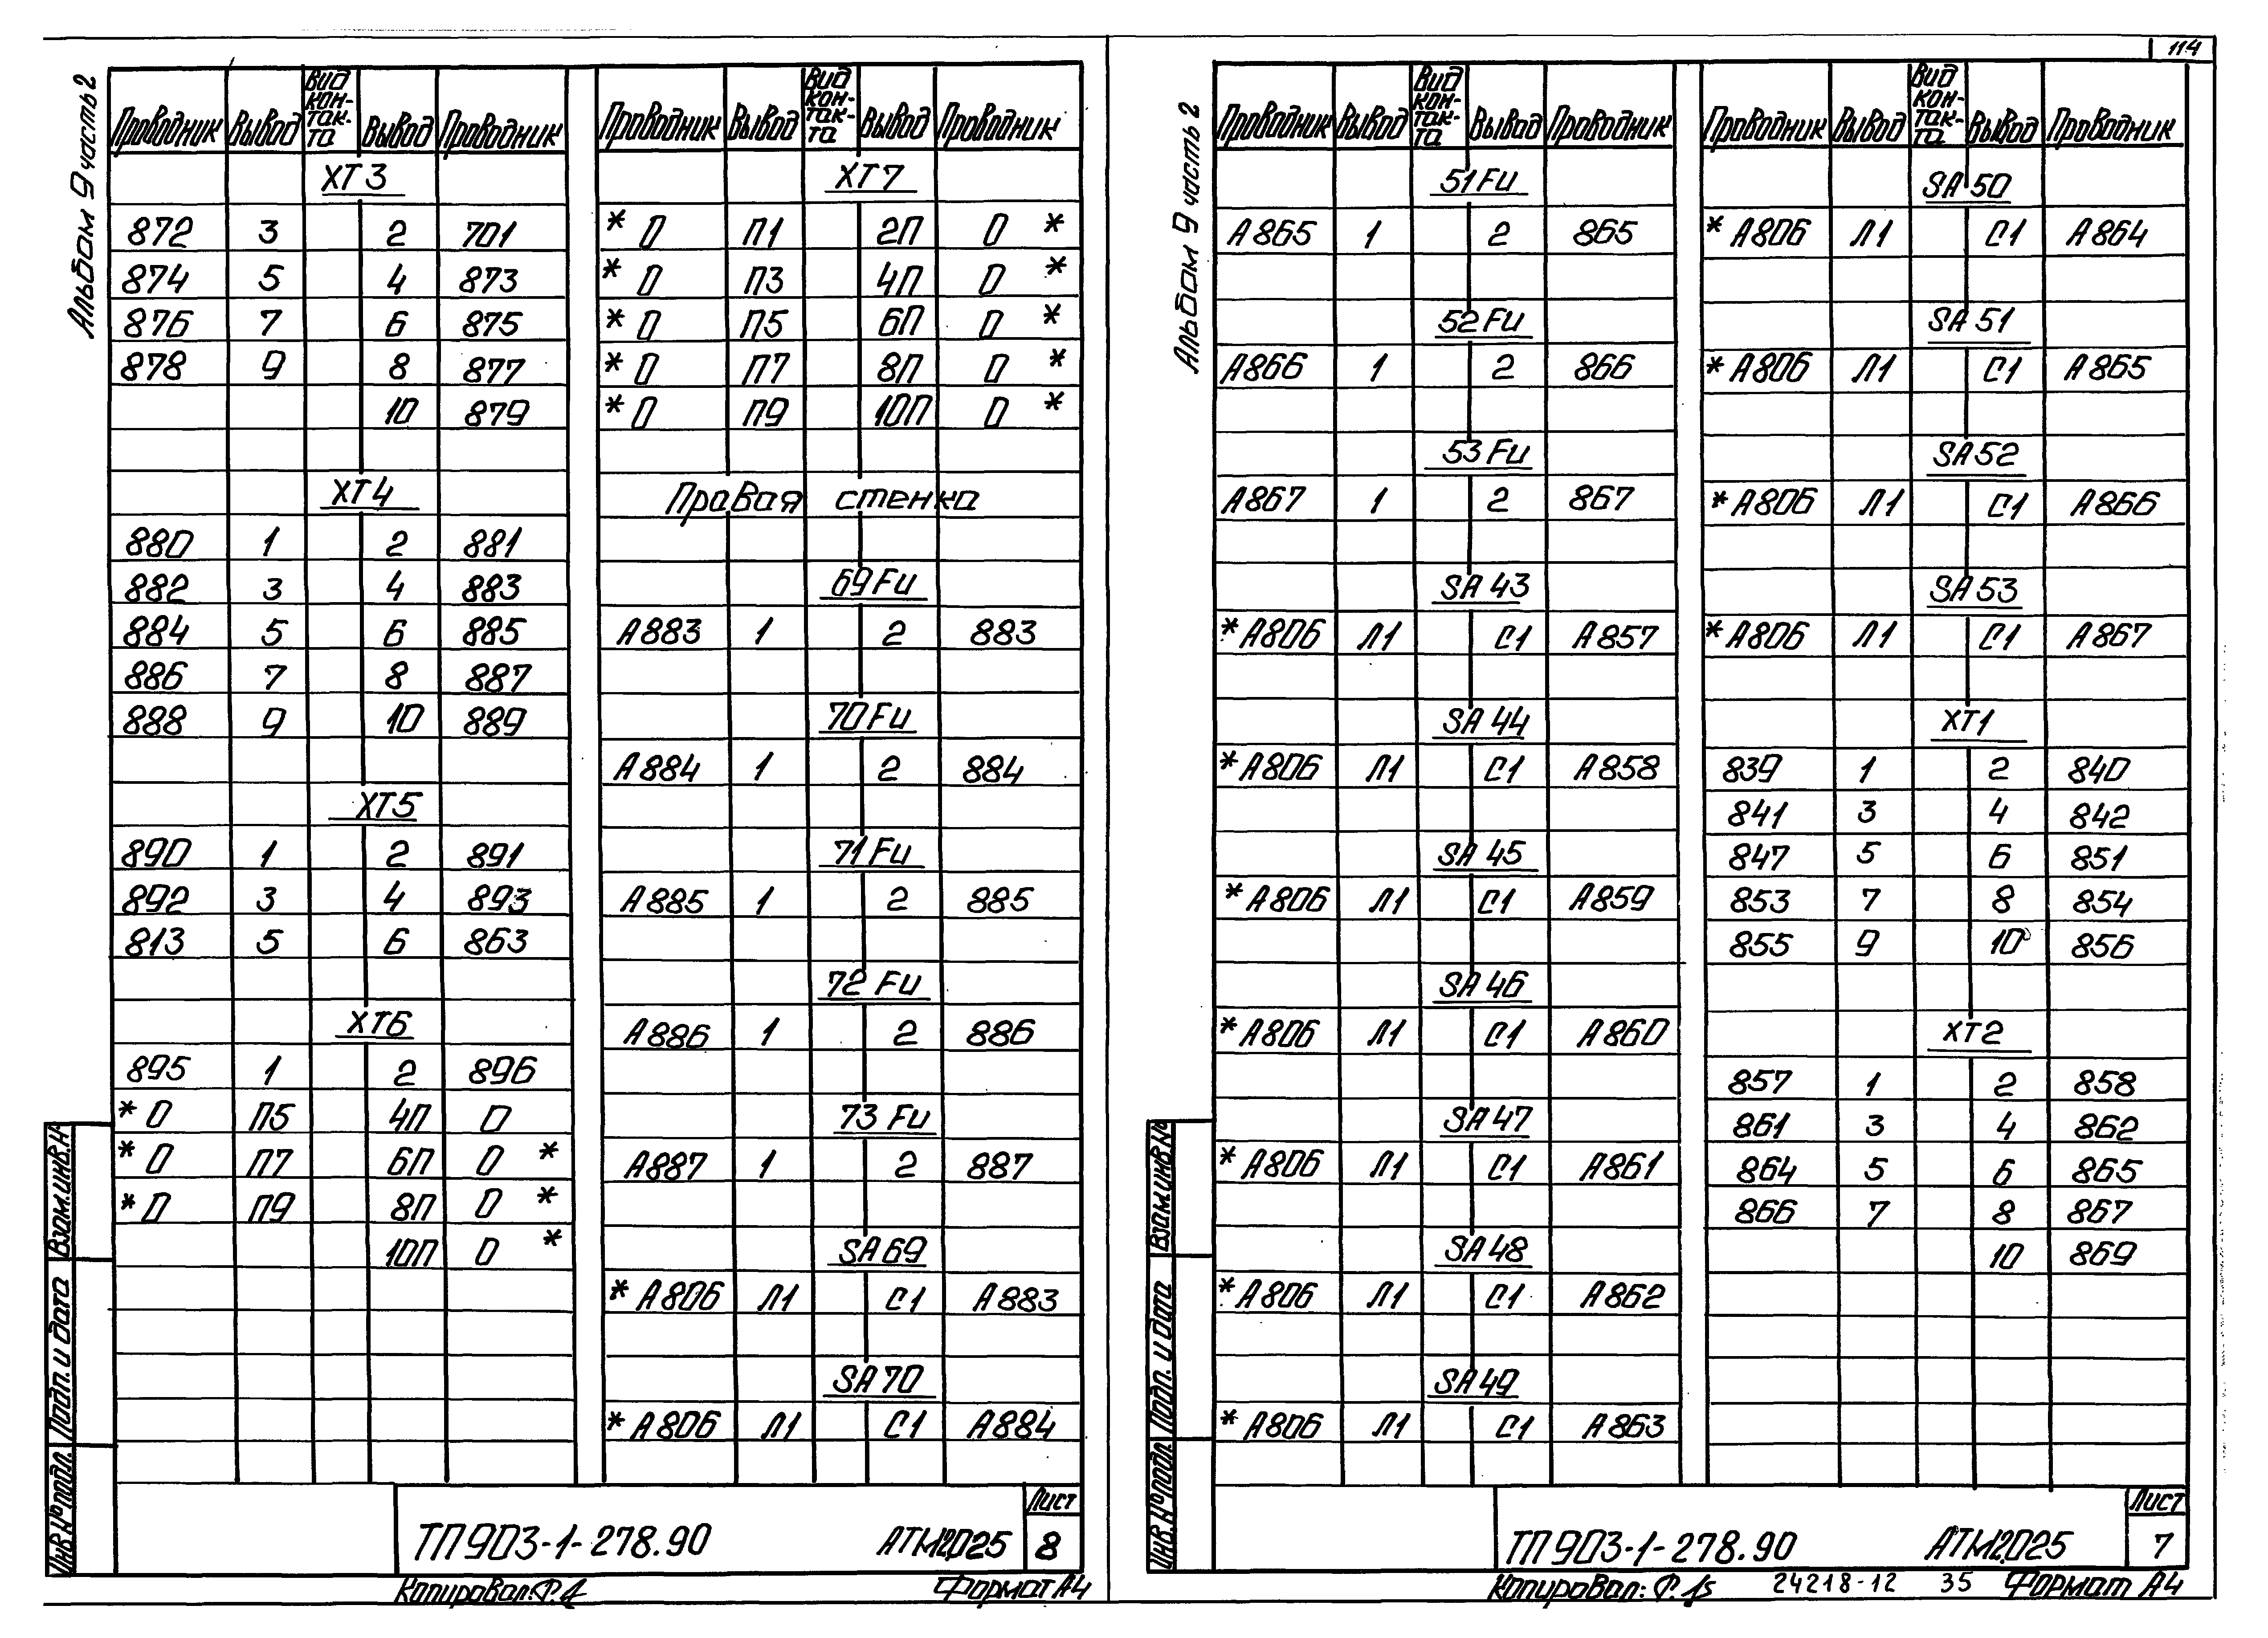 114
Альбом 9 часть 2
Проводник Вывод Вид контакта Вывод Проводник
ХТ3
872 3 2 701
874 5 4 873
876 7 6 875
878 9 8 877
10 879
ХТ4
880 1 2 881
882 3 4 883
884 5 6 885
886 7 8 887
888 9 10 889
ХТ5
890 1 2 891
892 3 4 893
813 5 6 863
ХТ6
895 1 2 896
* 0 П5 4П 0
* 0 П7 6П 0 *
* 0 П9 8П 0 *
10П 0 *
Проводник Вывод Вид контакта Вывод Проводник
ХТ7
* 0 П1 2П 0 *
* 0 П3 4П 0 *
* 0 П5 6П 0 *
* 0 П7 8П 0 *
* 0 П9 10П 0 *
Правая стенка
69 Fu
А883 1 2 883
70 Fu
А884 1 2 884
71 Fu
А885 1 2 885
72 Fu
А886 1 2 886
73 Fu
А887 1 2 887
SA 69
* А806 Л1 С1 А883
SA 70
* А806 Л1 С1 А884
Взам.инв.Н
Подп. и дата
Инв.Н°подл.
ТП 903-1-278.90 АТМ2.025 Лист 8
Копировал: Формат А4
Альбом 9 часть 2
Проводник Вывод Вид контакта Вывод Проводник
51 Fu
А865 1 2 865
52 Fu
А866 1 2 866
53 Fu
А867 1 2 867
SA 43
* А806 Л1 С1 А857
SA 44
* А806 Л1 С1 А858
SA 45
* А806 Л1 С1 А859
SA 46
* А806 Л1 С1 А860
SA 47
* А806 Л1 С1 А861
SA 48
* А806 Л1 С1 А862
SA 49
* А806 Л1 С1 А863
Проводник Вывод Вид контакта Вывод Проводник
SA 50
* А806 Л1 С1 А864
SA 51
* А806 Л1 С1 А865
SA 52
* А806 Л1 С1 А866
SA 53
* А806 Л1 С1 А867
ХТ1
839 1 2 840
841 3 4 842
847 5 6 851
853 7 8 854
855 9 10 856
ХТ2
857 1 2 858
861 3 4 862
864 5 6 865
866 7 8 867
10 869
Взам.инв.Н
Подп. и дата
Инв.Н°подл.
ТП 903-1-278.90 АТМ2.025 Лист 7
Копировал: 24218-12 35 Формат А4